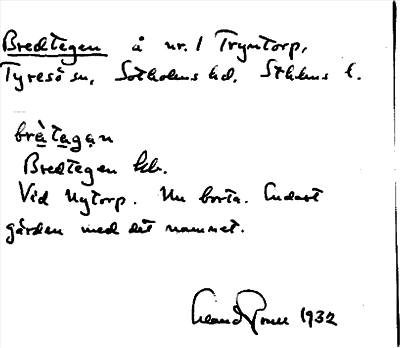 Bredtegen å nr. 1 Tryntorp,
Tyresö sn, Sotholms hd, Sthlms l.
brè̱ta̱ga̱n
Bredtegen hb.
Vid Nytorp. Nu borta. Endast
gården med det namnet.
1932